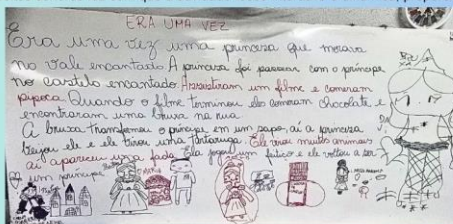 ERA UMA VEZ
Era uma vez uma princesa que morava
no vale encantado. A princesa foi passear com o príncipe
no castelo encantado. Assistiram um filme e comeram
pipoca. Quando o filme terminou eles comeram chocolate e
encontraram uma bruxa na rua.
A bruxa transformou o príncipe em um sapo, aí a princesa
beijou ele e ele virou uma tartaruga. Ele virou muitos animais
aí apareceu uma fada. Ela jogou um feitiço e ele voltou a ser
um príncipe.